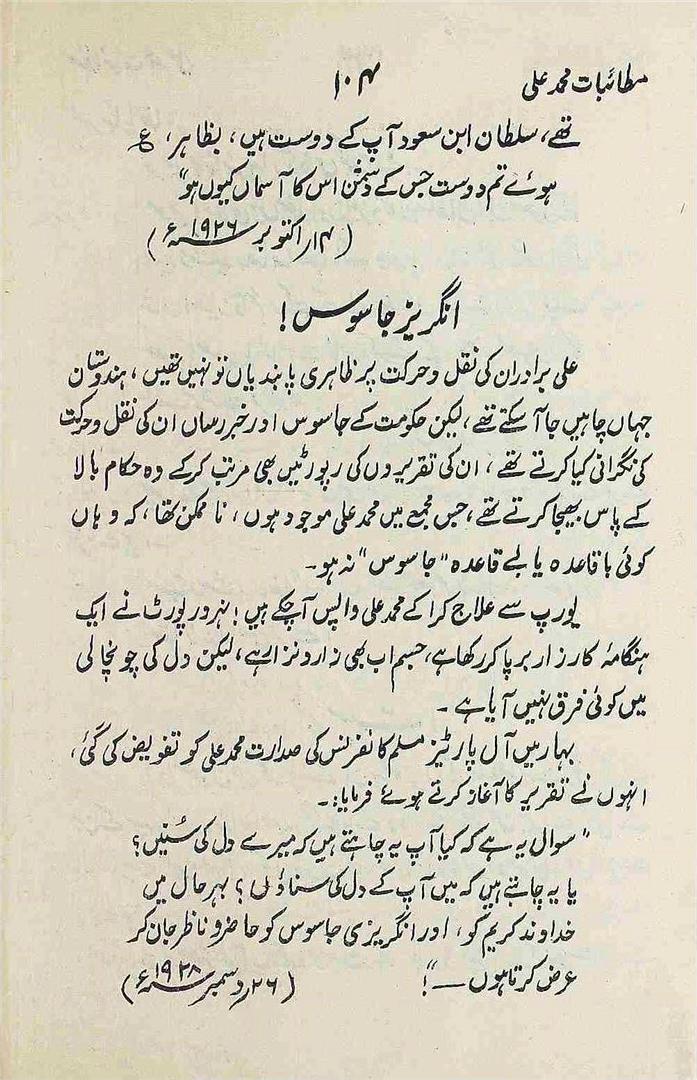 مطائبات محمد علی
۱۰۴
تھے، سلطان ابن سعود آپ کے دوست ہیں، بظاہر، ع
ہوئے تم دوست جس کے دشمن اس کا آسماں کیوں ہو"
(۴ار اکتوبر ۱۹۲۶ء)
انگریز جاسوس!
علی برادران کی نقل و حرکت پر ظاہری پابندیاں تو نہیں تھیں، ہندوستان
جہاں چاہیں جا آ سکتے تھے، لیکن حکومت کے جاسوس اور خبر رساں ان کی نقل و حرکت
کی نگرانی کیا کرتے تھے، ان کی تقریروں کی رپورٹیں بھی مرتب کرکے وہ حکام بالا
کے پاس بھیجا کرتے تھے، جس مجمع میں محمد علی موجود ہوں، ناممکن تھا، کہ وہاں
کوئی باقاعدہ یا بے قاعدہ "جاسوس" نہ ہو۔
یورپ سے علاج کرا کے محمد علی واپس آچکے ہیں! نہرو رپورٹ نے ایک
ہنگامۂ کارزار برپا کر رکھا ہے، جسم اب بھی زار و نزار ہے، لیکن دل کی چونچالی
میں کوئی فرق نہیں آیا ہے۔
بہار میں آل پارٹیز مسلم کانفرنس کی صدارت محمد علی کو تفویض کی گئی،
انہوں نے تقریر کا آغاز کرتے ہوئے فرمایا:۔
"سوال یہ ہے کہ کیا آپ یہ چاہتے ہیں کہ میرے دل کی سنیں؟
یا یہ چاہتے ہیں کہ میں آپ کے دل کی سناؤں؟ بہرحال میں
خداوند کریم کو، اور انگریزی جاسوس کو حاضر و ناظر جان کر
عرض کرتا ہوں ــــ"!
(۲۶ر دسمبر ۱۹۲۸ء)